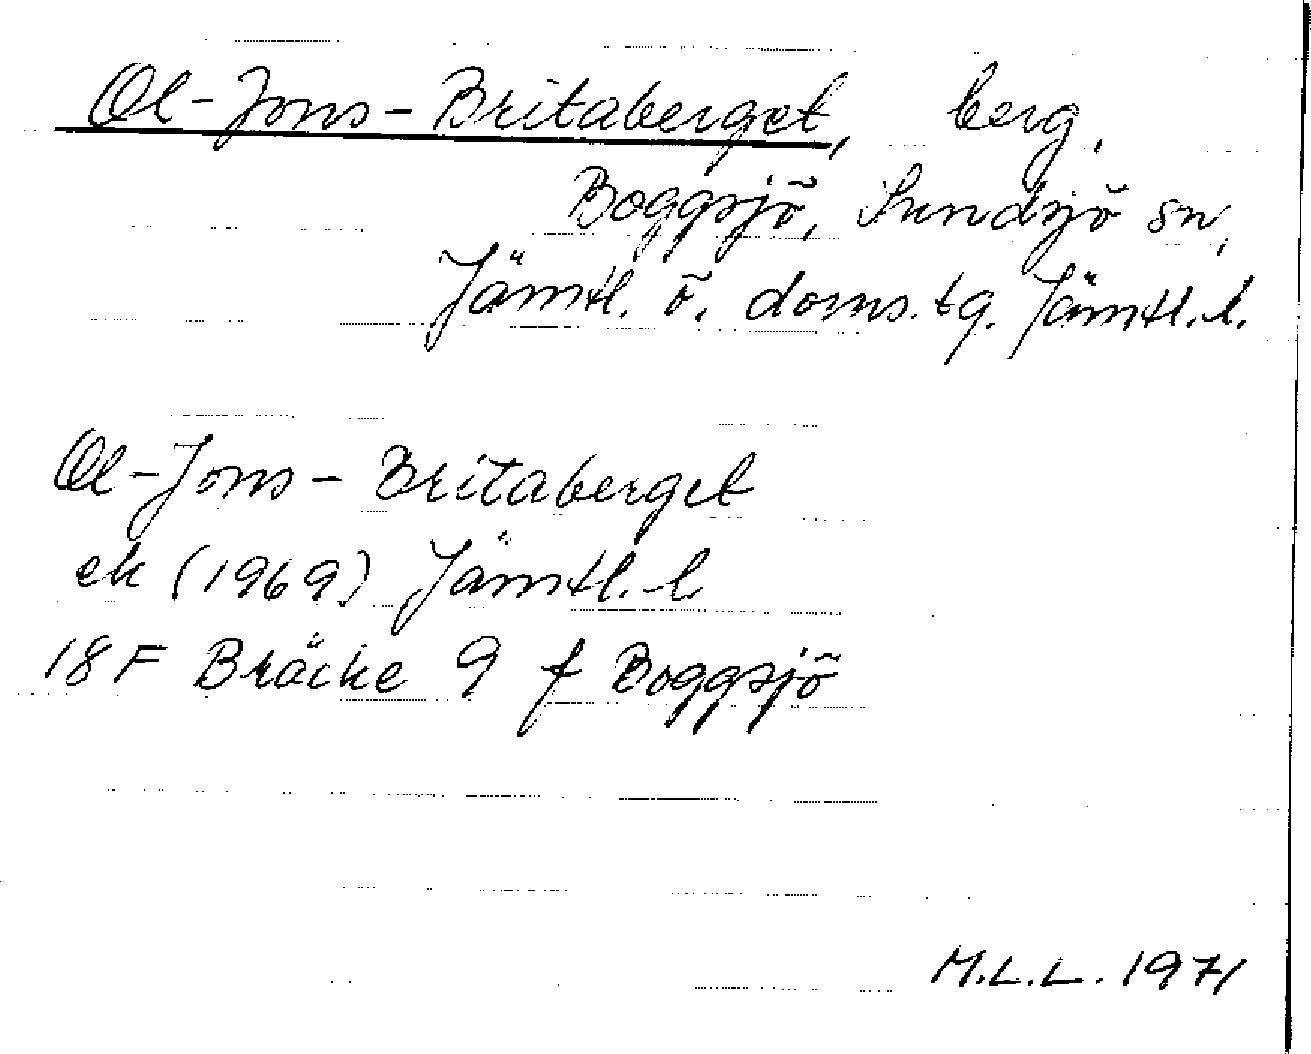 Ol-Jons-Britaberget, berg,
Boggsjö, Sundsjö sn,
Jämtl. ö. doms. tg. Jämtl. l.
Ol-Jons-Britaberget
ek (1969) Jämtl. l
18F Bräcke 9 f Boggsjö
M.L.L. 1971